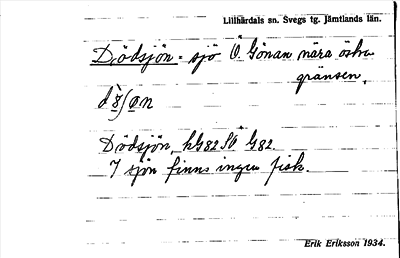 Lillhärdals sn. Svegs tg. Jämtlands län.
Dödsjön = sjö Ö. Gönan nära östra
gränsen.
Dödsjön,
I sjön finns ingen fisk.
Erik Eriksson 1934.